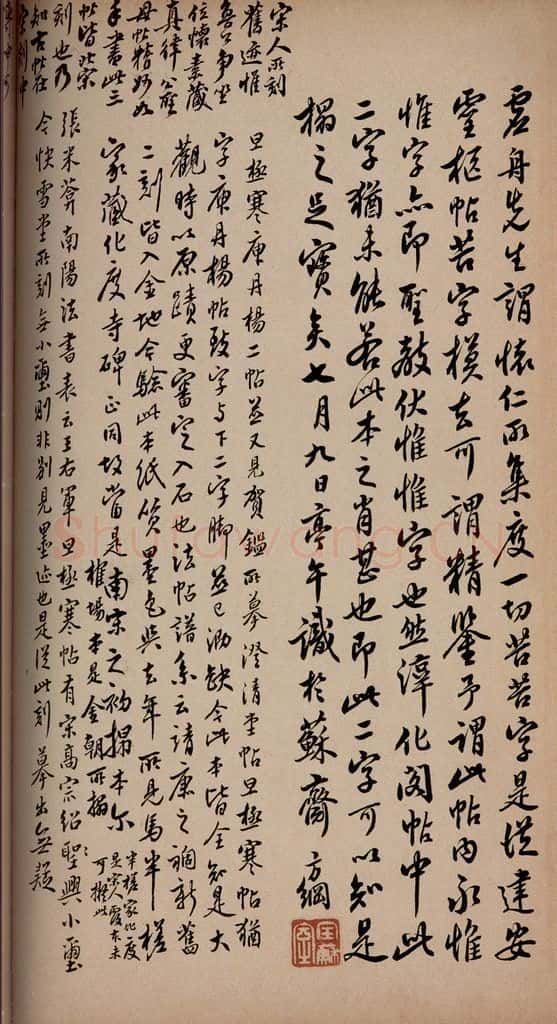 虛舟先生謂懷仁所集度一切苦苦字是從建安
靈柩帖苦字模去可謂精鑒予謂此帖內永惟
惟字亦即聖教伏惟惟字也然淳化閣帖中此
二字猶未能若此本之肖甚也即此二字可以知是
榻之足寶矣七月九日亭午識於蘇齋 方綱
旦極寒庾丹楊二帖並又見賀鑑所摹澄清堂帖旦極寒帖猶
字庾丹楊帖致字与下二字脚並已泐缺今此本皆全知是大
觀時以原蹟更審定入石也法帖譜系云靖康之禍新舊
二刻皆入金地今驗此本紙質墨色與去年所見馬半槎
家藏化度寺碑正同故當是南宋之初搨本尔
榷場本是金朝所搨
半槎家化度
是宋人
可撫此
張米菴南陽法書表云王右軍旦極寒帖有宋高宗紹聖興小璽
今快雪堂所刻無小璽則非別見墨迹也是從此刻摹出無疑
宋人所刻
舊迹惟
魯公爭坐
位懷素藏
真律公座
母帖精妙如
手書此三
帖皆北宋
刻也乃
知古帖在
Shufawang.CN